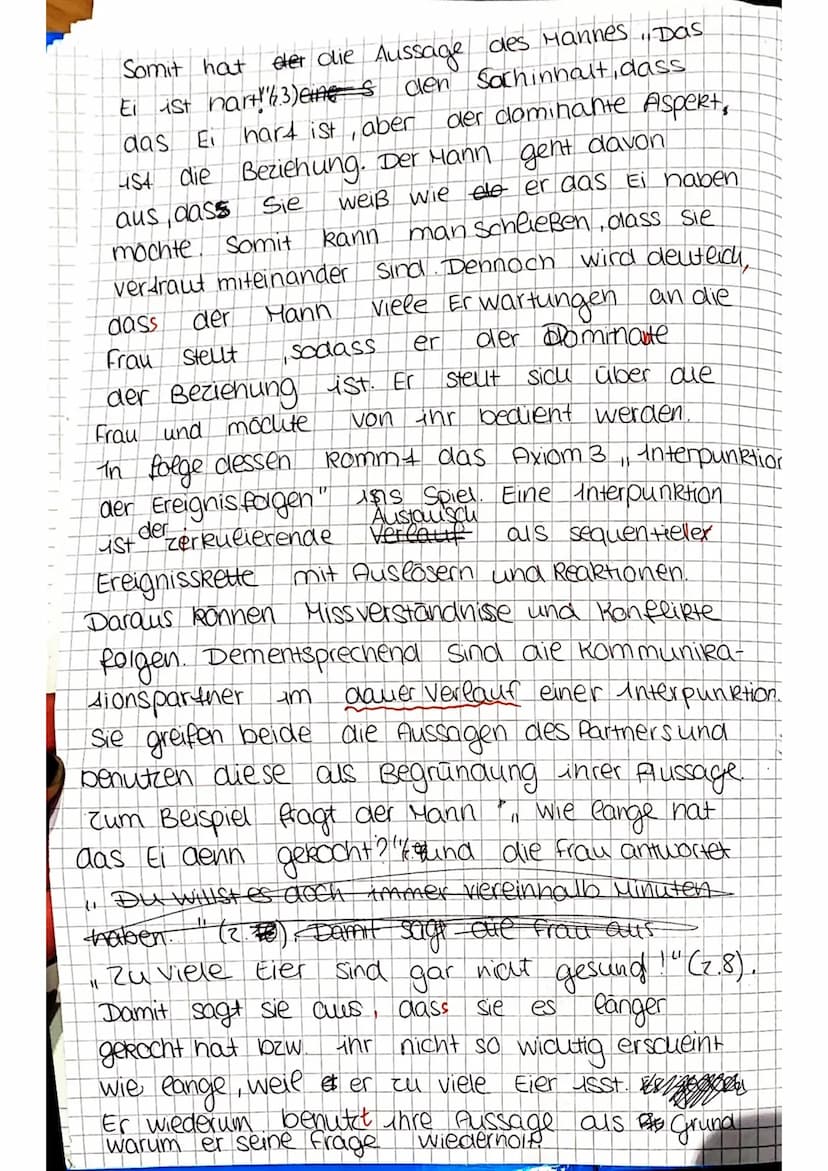 Somit hat der die Aussage des Mannes „Das
Ei ist hart!"(z.3) eine s den Sachinhalt, dass
das Ei hart ist, aber der dominante Aspekt,
ist die Beziehung. Der Mann geht davon
aus, dass Sie weiß wie er das Ei haben
möchte. Somit kann man schließen, dass sie
vertraut miteinander sind. Dennoch wird deutlich,
dass der Mann viele Erwartungen an die
Frau stellt, sodass er der Dominate
der Beziehung ist. Er stellt sich über die
Frau und möchte von ihr bedient werden.
In folge dessen kommt das Axiom 3 „Interpunktion
der Ereignisfolgen" ins Spiel. Eine Interpunktion
Austausch
ist der zerkulierende Verlauf als sequentieller
Ereignisskette mit Auslösern und Reaktionen.
Daraus können Missverständnise und Konflikte
folgen. Dementsprechend sind die Kommunika-
tionspartner im dauer Verlauf einer Interpunktion.
Sie greifen beide die Aussagen des Partners und
benutzen diese als Begründung ihrer Aussage.
Zum Beispiel fragt der Mann „Wie lange hat
das Ei denn gekocht?" und die Frau antwortet
„Du willst es doch immer viereinhalb Minuten
haben." (z. ). Damit sagt die Frau aus
„Zu viele Eier sind gar nicht gesund!" (z.8).
Damit sagt sie aus, dass sie es länger
gekocht hat bzw. ihr nicht so wichtig erscheint
wie lange, weil er zu viele Eier isst.
Er wiederum benutzt ihre Aussage als Grund
warum er seine Frage wiederholt